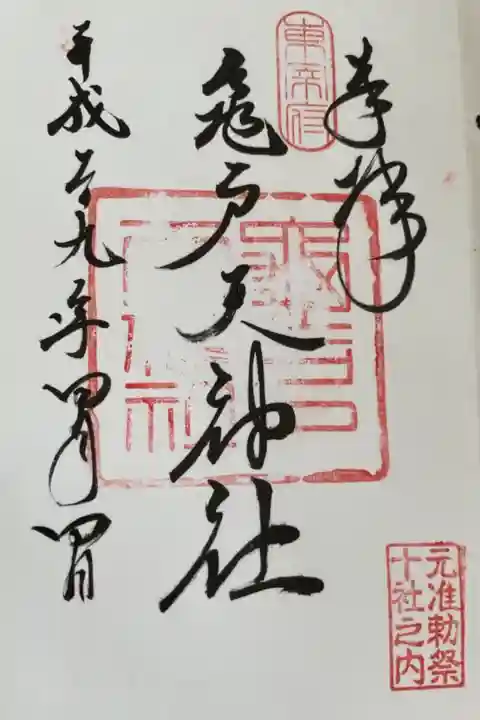 奉拝
東宰府
亀戸天神社
平成二十九年四月四日
元准勅祭
十社之内